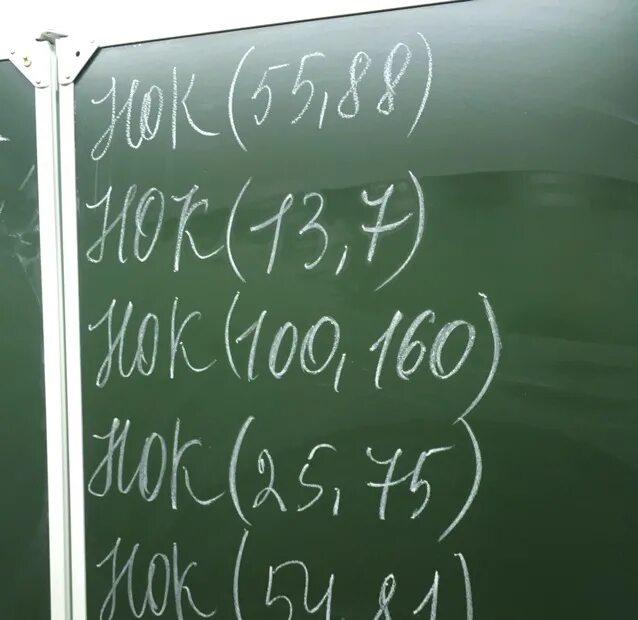 НОК (55, 88)
НОК (13, 7)
НОК (100, 160)
НОК (25, 75)
НОК (54, 81)